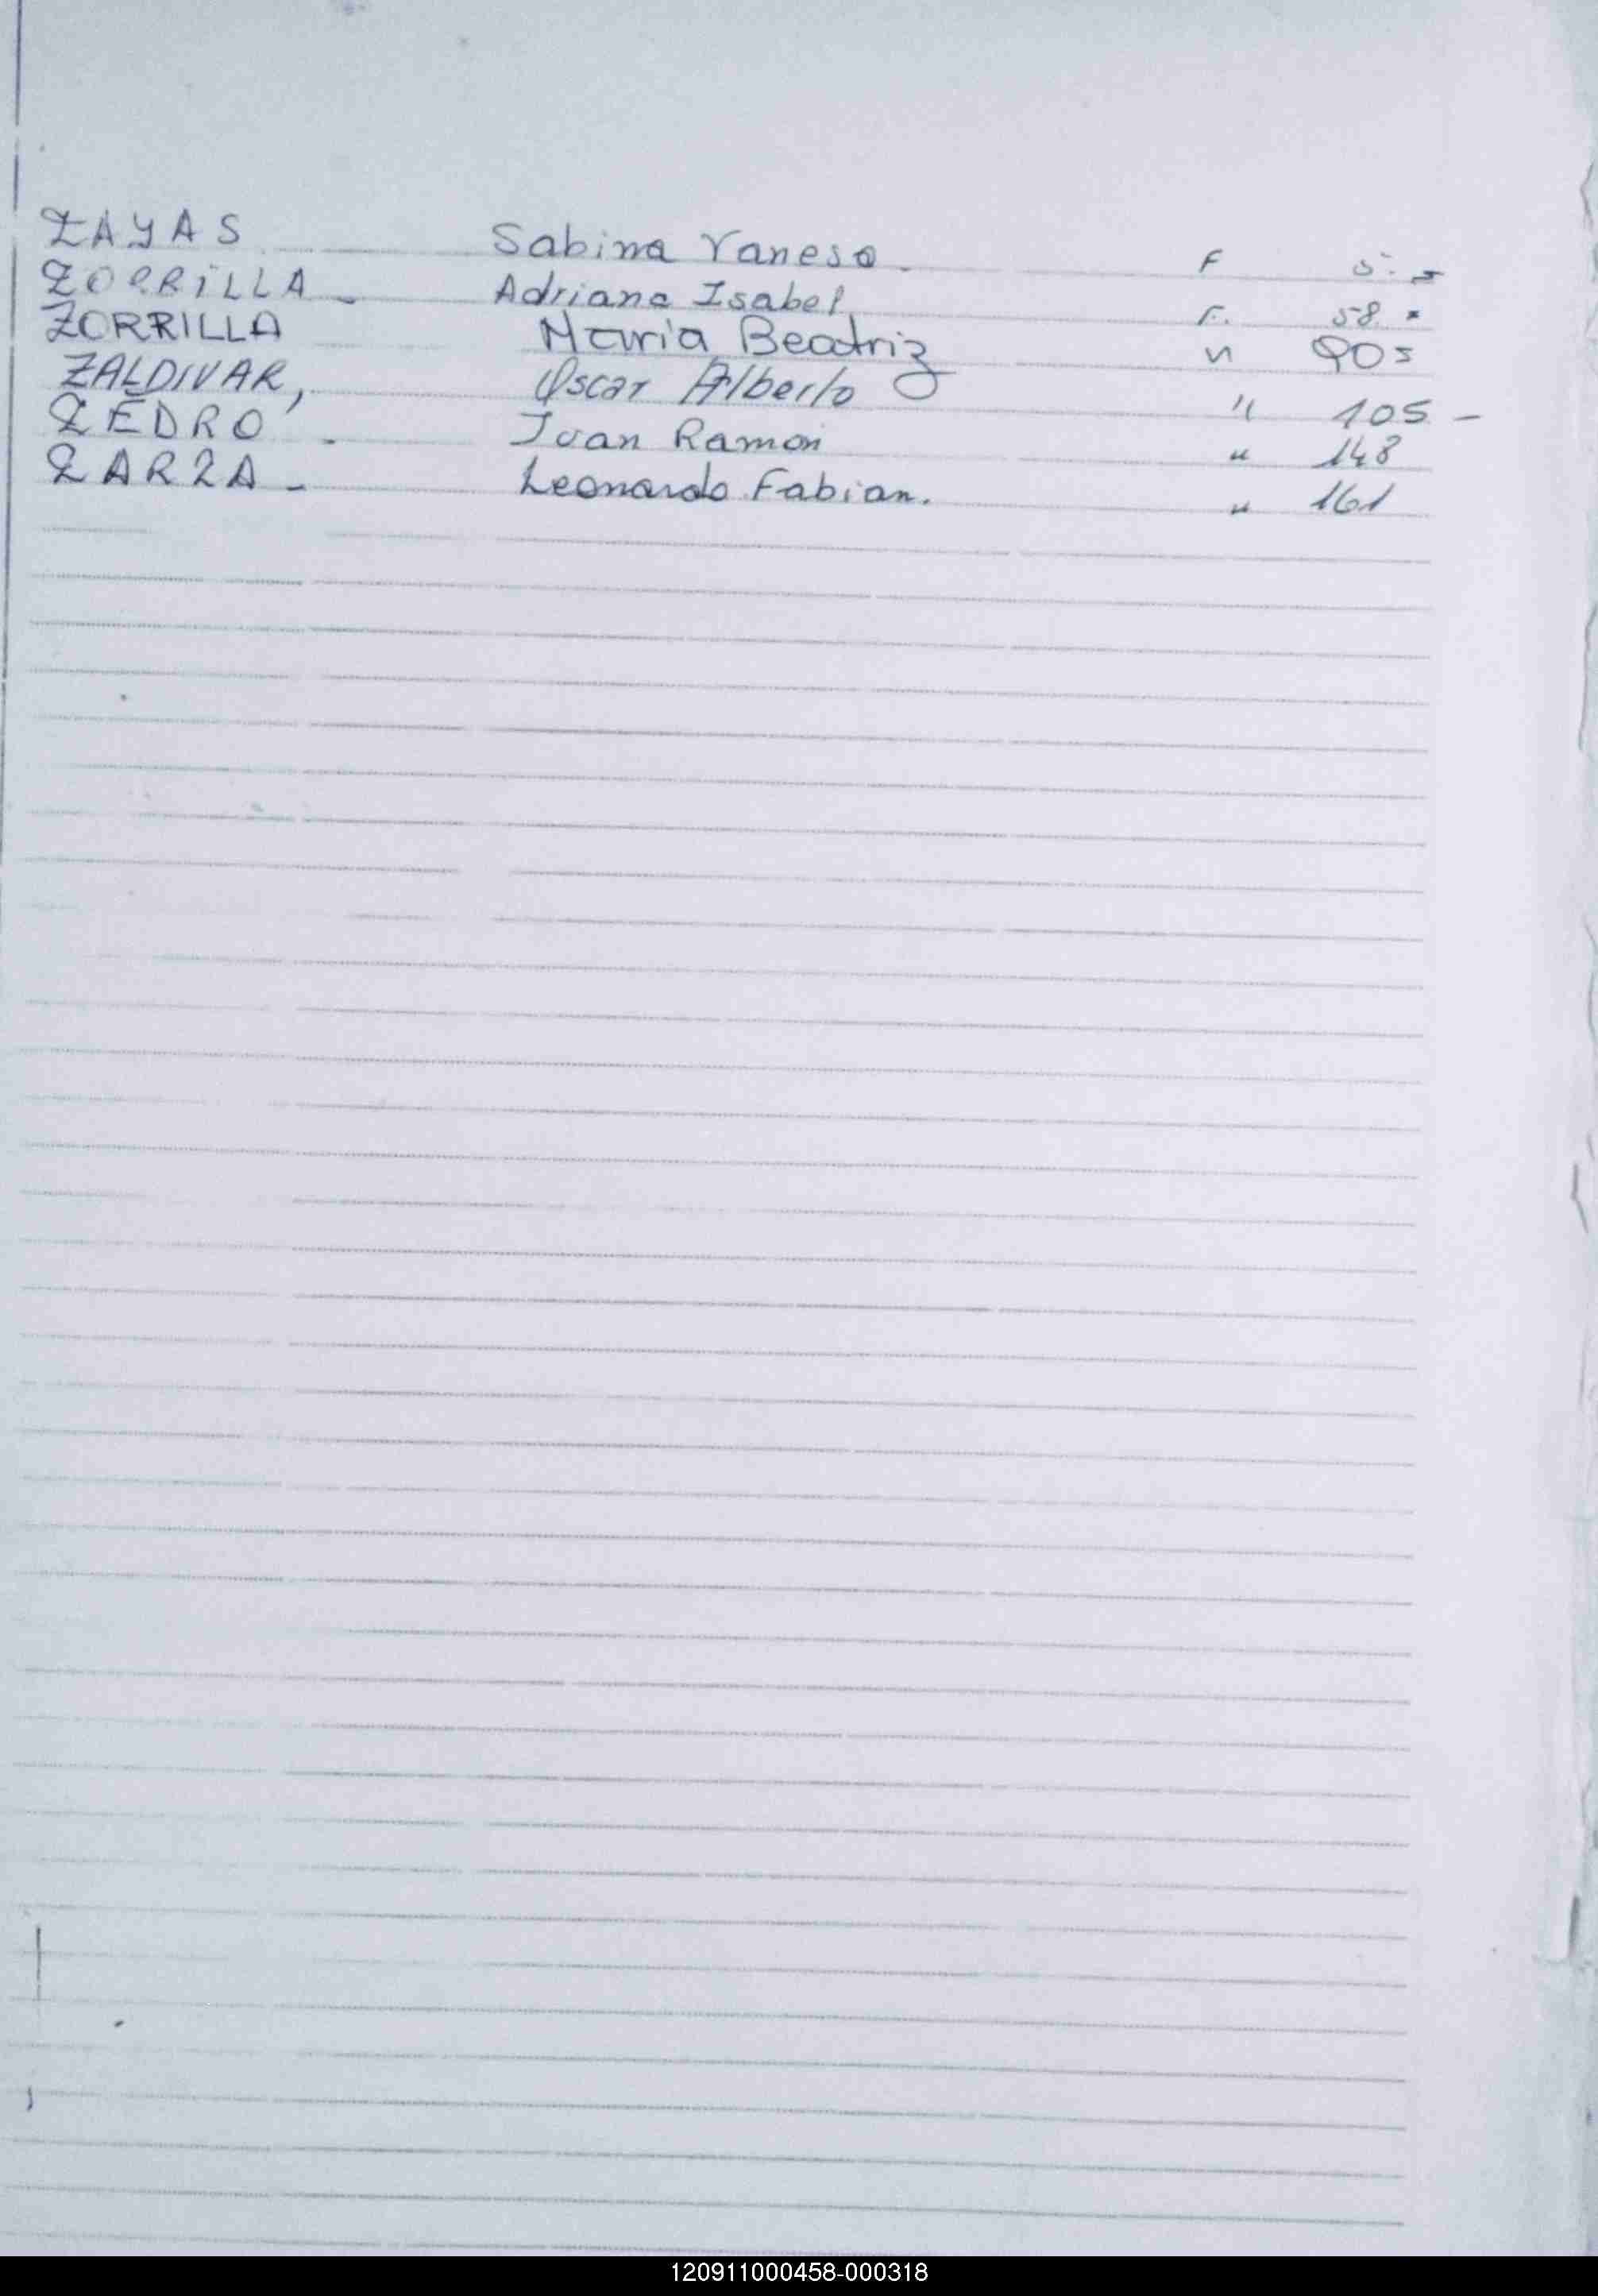 ZAYAS Sabina Vanesa. F 5.-
ZORRILLA - Adriana Isabel. F. 58.
ZORRILLA Maria Beatriz " 90
ZALDIVAR, Oscar Alberto " 105 -
ZEDRO - Juan Ramon " 148
ZARZA - Leonardo Fabian. " 161
120911000458-000318